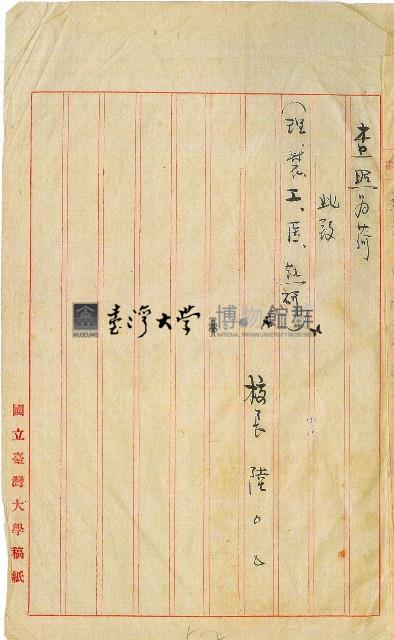 查照為荷
此致
(理、農、工、醫、熱研
校長 陸○○
國立臺灣大學稿紙
MUSEUMS
臺灣大學
博物館群
NATIONAL TAIWAN UNIVERSITY MUSEUMS